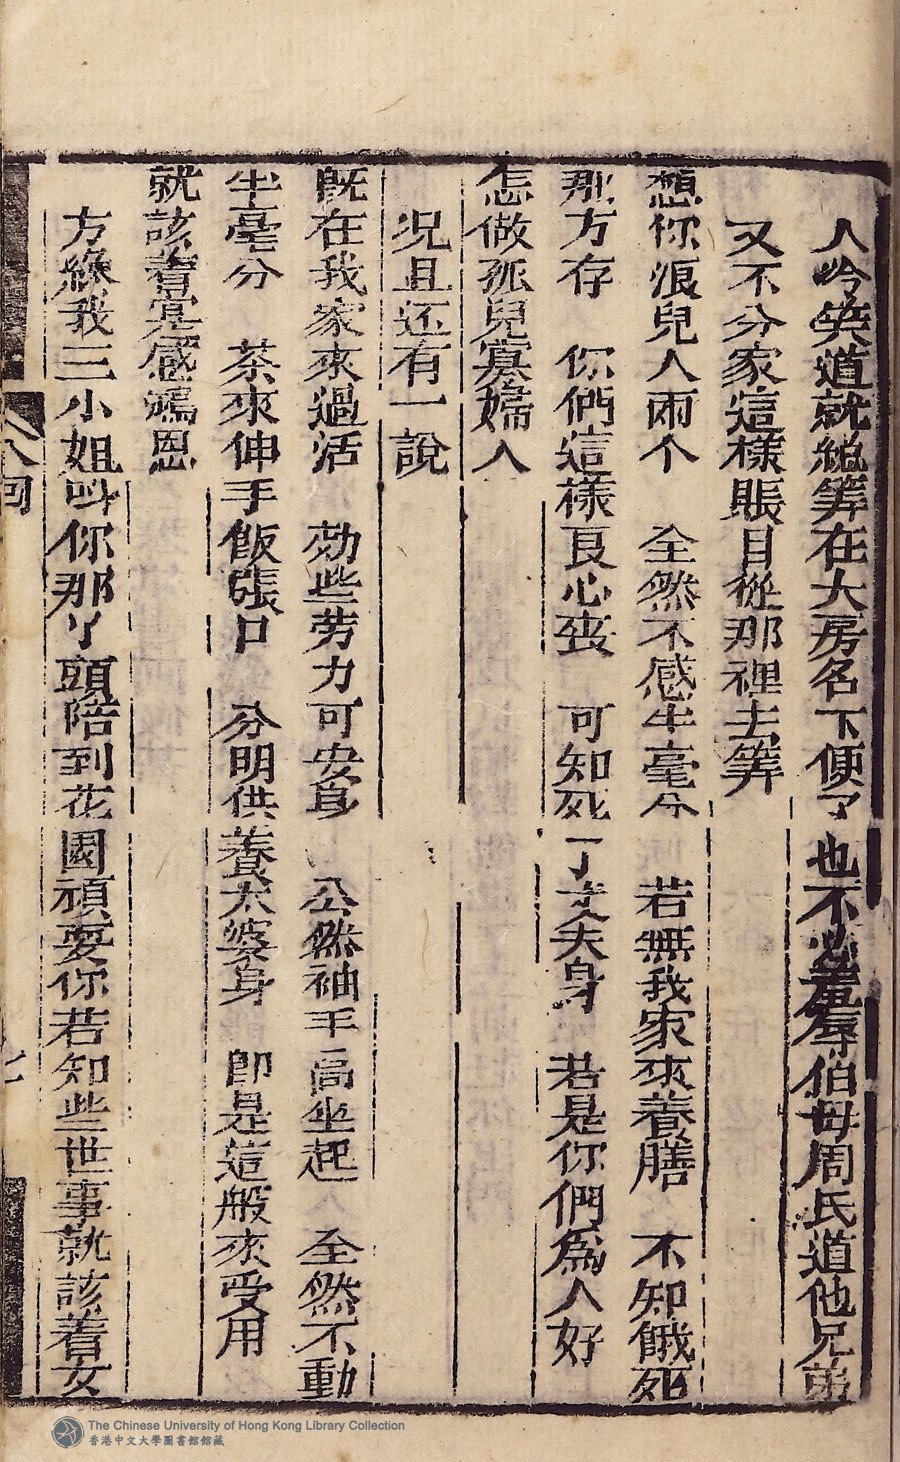 人吟笑道就總筭在大房名下便了也不羞辱伯母周氏道他兄弟
又不分家這樣賬目從那裡去筭
想你浪兒人兩个　全然不感半毫分　若無我家來養膳　不知餓死
那方存　你們這樣良心喪　可知死了丈夫身　若是你們爲人好
怎做孤兒寡婦人
況且还有一說
既在我家來過活　効些劳力可安身　公然袖手高坐起　全然不動
半毫分　茶來伸手飯張口　分明供養太婆身　卽是這般來受用
就該着寔感鴻恩
方纔我三小姐叫你那丫頭陪到花園頑耍你若知些世事就該着女
八回
The Chinese University of Hong Kong Library Collection
香港中文大學圖書館館藏